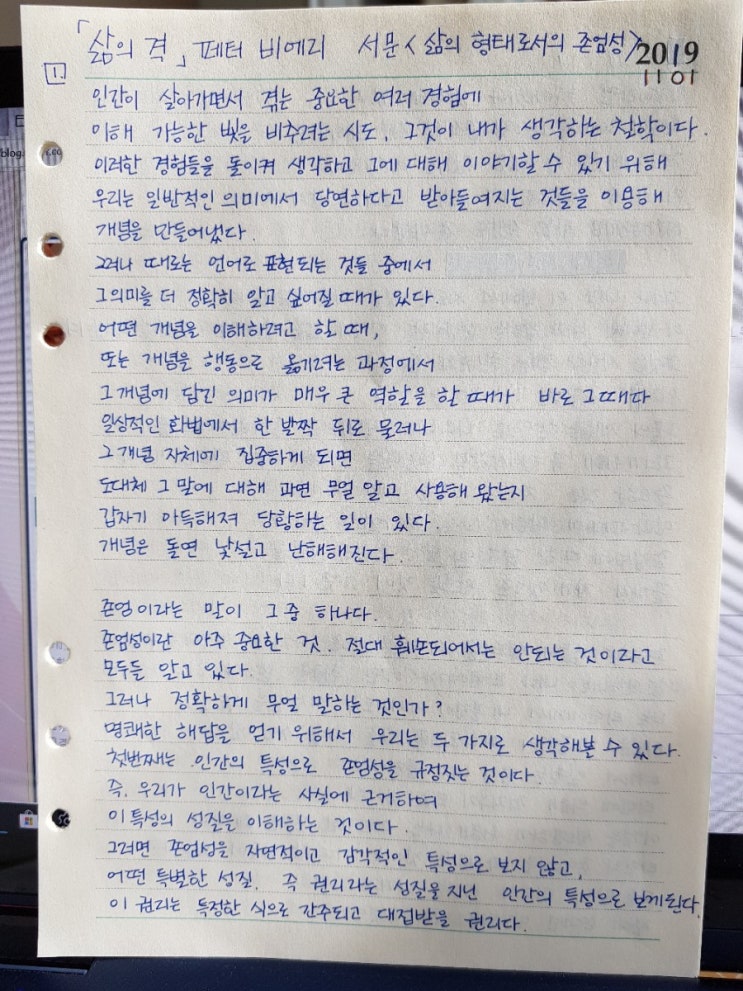 「삶의 격」 페터 비에리 서문 <삶의 형태로서의 존엄성> 2019
1 1101
인간이 살아가면서 겪는 중요한 여러 경험에
이해 가능한 빛을 비추려는 시도, 그것이 내가 생각하는 철학이다.
이러한 경험들을 돌이켜 생각하고 그에 대해 이야기할 수 있기 위해
우리는 일반적인 의미에서 당연하다고 받아들여지는 것들을 이용해
개념을 만들어냈다.
그러나 때로는 언어로 표현되는 것들 중에서
그 의미를 더 정확히 알고 싶어질 때가 있다.
어떤 개념을 이해하려고 할 때,
또는 개념을 행동으로 옮기려는 과정에서
그 개념에 담긴 의미가 매우 큰 역할을 할 때가 바로 그때다
일상적인 화법에서 한 발짝 뒤로 물러나
그 개념 자체에 집중하게 되면
도대체 그 말에 대해 과연 무얼 알고 사용해 왔는지
갑자기 아득해져 당황하는 일이 있다.
개념은 돌연 낯설고 난해해진다.
존엄이라는 말이 그 중 하나다.
존엄성이란 아주 중요한 것. 절대 훼손되어서는 안되는 것이라고
모두들 알고 있다.
그러나 정확하게 무얼 말하는 것인가?
명쾌한 해답을 얻기 위해서 우리는 두 가지로 생각해볼 수 있다.
첫번째는 인간의 특성으로 존엄성을 규정짓는 것이다.
즉, 우리가 인간이라는 사실에 근거하여
이 특성의 성질을 이해하는 것이다.
그러면 존엄성을 자연적이고 감각적인 특성으로 보지 않고,
어떤 특별한 성질. 즉 권리라는 성질을 지닌 인간의 특성으로 보게된다.
이 권리는 특정한 식으로 간주되고 대접받을 권리다.